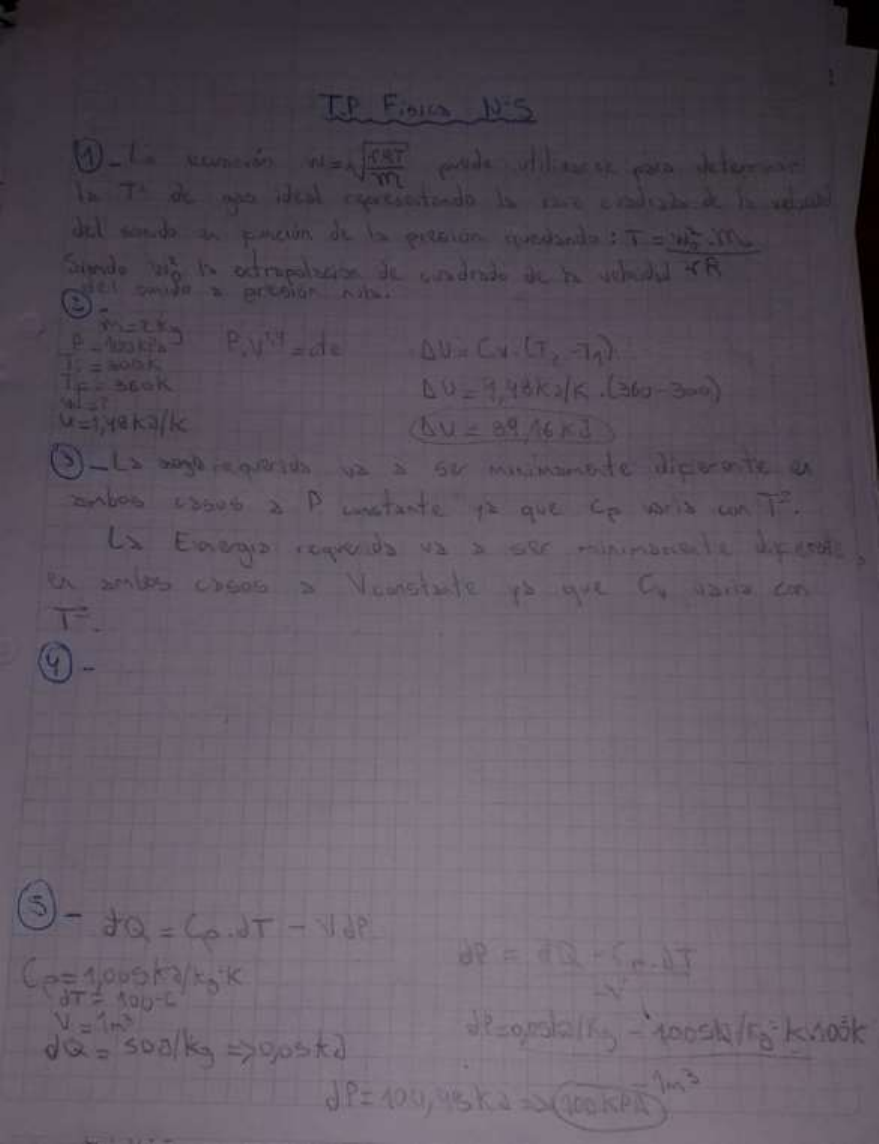 T.P Fisica N-5
①-La ecuación w=√(γRT/m) puede utilizarse para determinar
la Tª de gas ideal representando la cuadrado de la velocidad
del sonido en función de la presion quedando: T = w₀².m / γR
Siendo w₀² la extrapolacion de cuadrado de la velocidad
del sonido a presión nula.
②-
m=2kg
P=100kPa
Ti=300K
Tf=360K
w=?
U=1,48kJ/K
P.V^1,4 = cte
ΔU = Cv.(T₂-T₁)
ΔU = 1,48kJ/K.(360-300)
ΔU = 89,16kJ
③-La requerida va a ser minimamente diferente en
ambos casos a P constante ya que Cp varia con Tª.
La Energia requerida va a ser minimamente diferente,
en ambos casos a V constante ya que Cv varia con
Tª.
④-
⑤- dQ = Cp.dT - VdP
Cp=1,005kJ/kg.K
dT=100°C
V=1m³
dQ=50J/kg =>0,05kJ
dP = dQ - Cp.dT / -V
dP=0,05kJ/kg - 1005kJ/kg.K.100K / -1m³
dP=100,45kJ => 100KPa